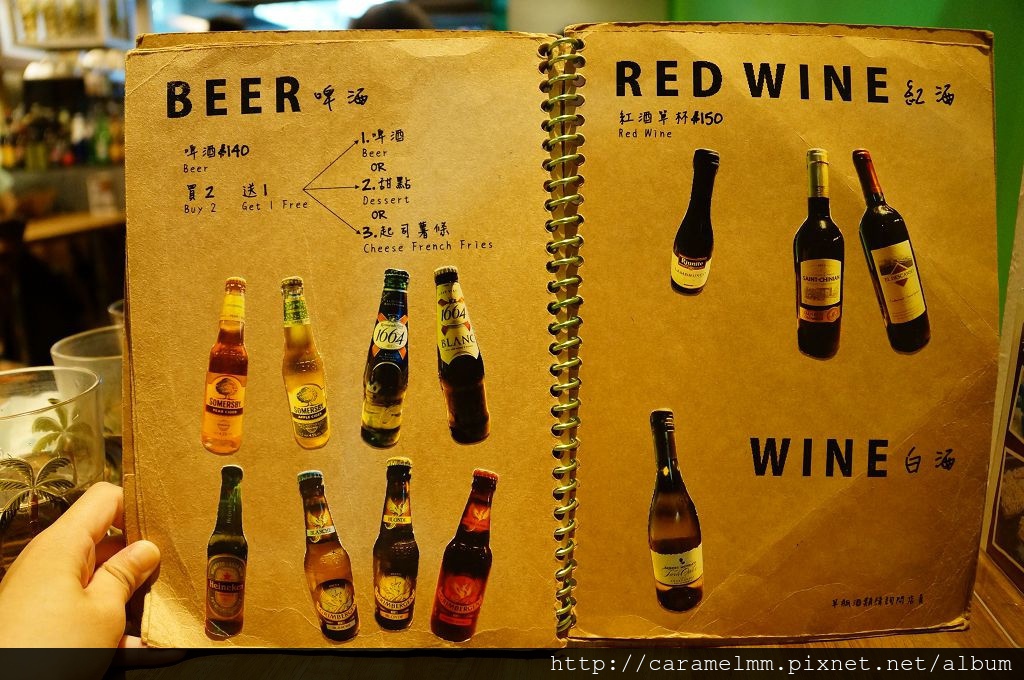 BEER 啤酒
啤酒$140
Beer
買2 送1
Buy 2 Get 1 Free
1.啤酒
Beer
OR
2.甜點
Dessert
OR
3.起司薯條
Cheese French Fries
SOMERSBY
PEAR CIDER
SOMERSBY
APPLE CIDER
1664
1664
BLANC
Heineken
BLANCHE
GRIMBERGEN
BLONDE
GRIMBERGEN
GRIMBERGEN
RED WINE 紅酒
紅酒單杯$150
Red Wine
Riunite
LAMBRUSCO
SAINT-CHINIAN
WINE 白酒
單瓶酒類請詢問店員
http://caramelmm.pixnet.net/album